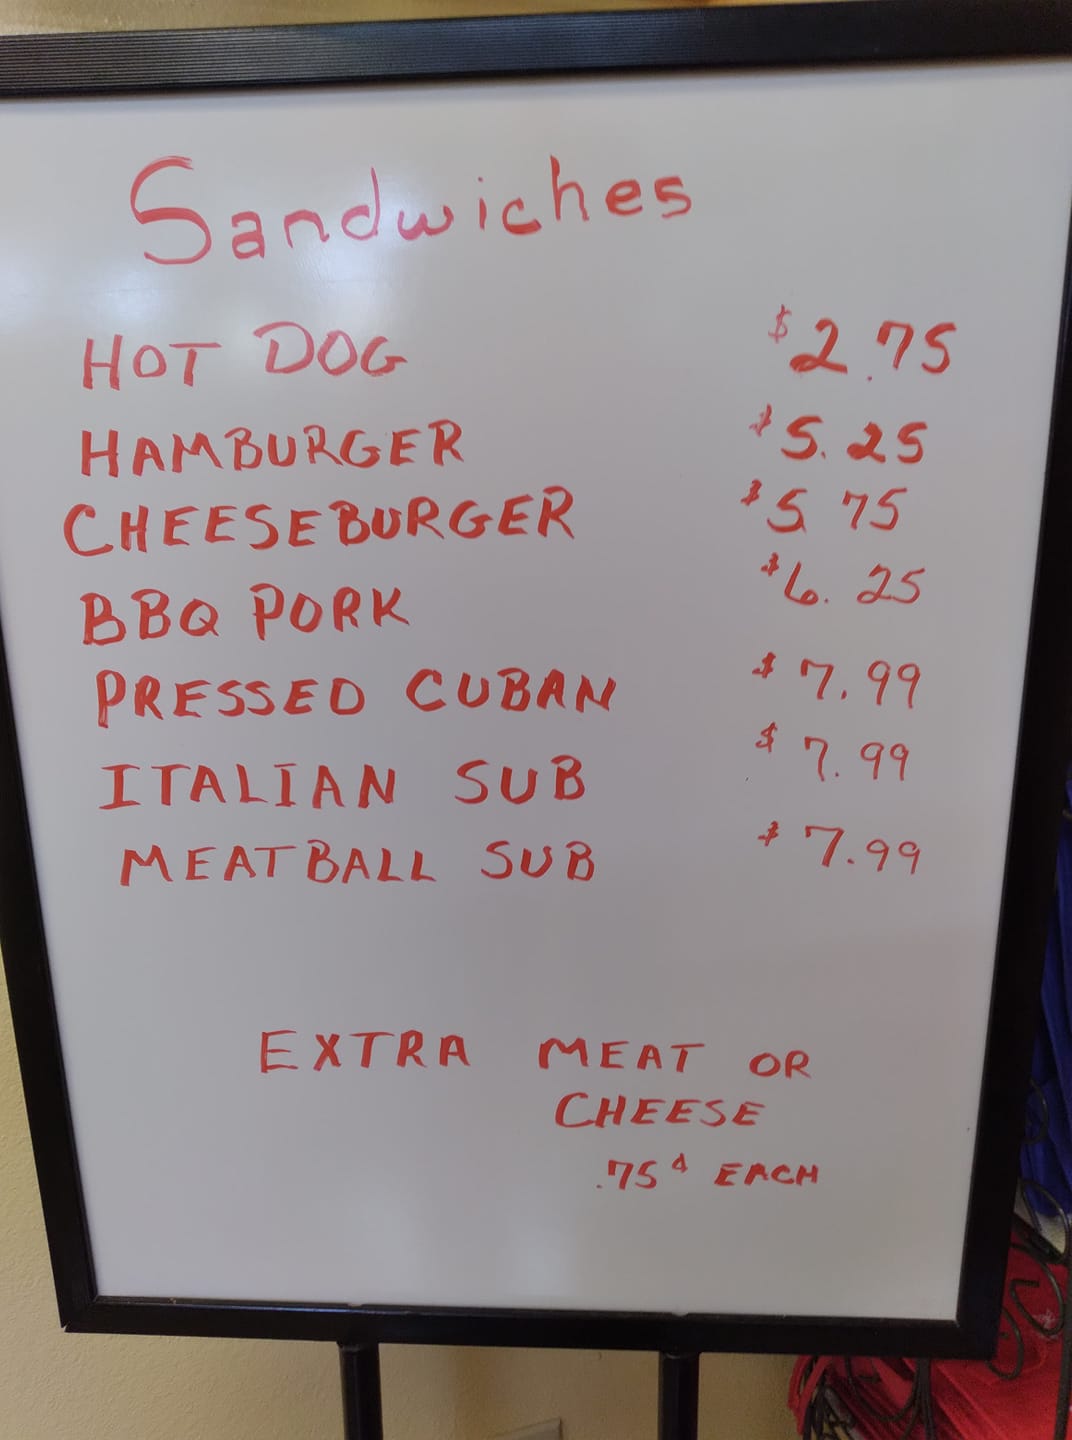 Sandwiches
HOT DOG $2.75
HAMBURGER $5.25
CHEESEBURGER $5.75
BBQ PORK $6.25
PRESSED CUBAN $7.99
ITALIAN SUB $7.99
MEATBALL SUB $7.99
EXTRA MEAT OR
CHEESE
.75¢ EACH